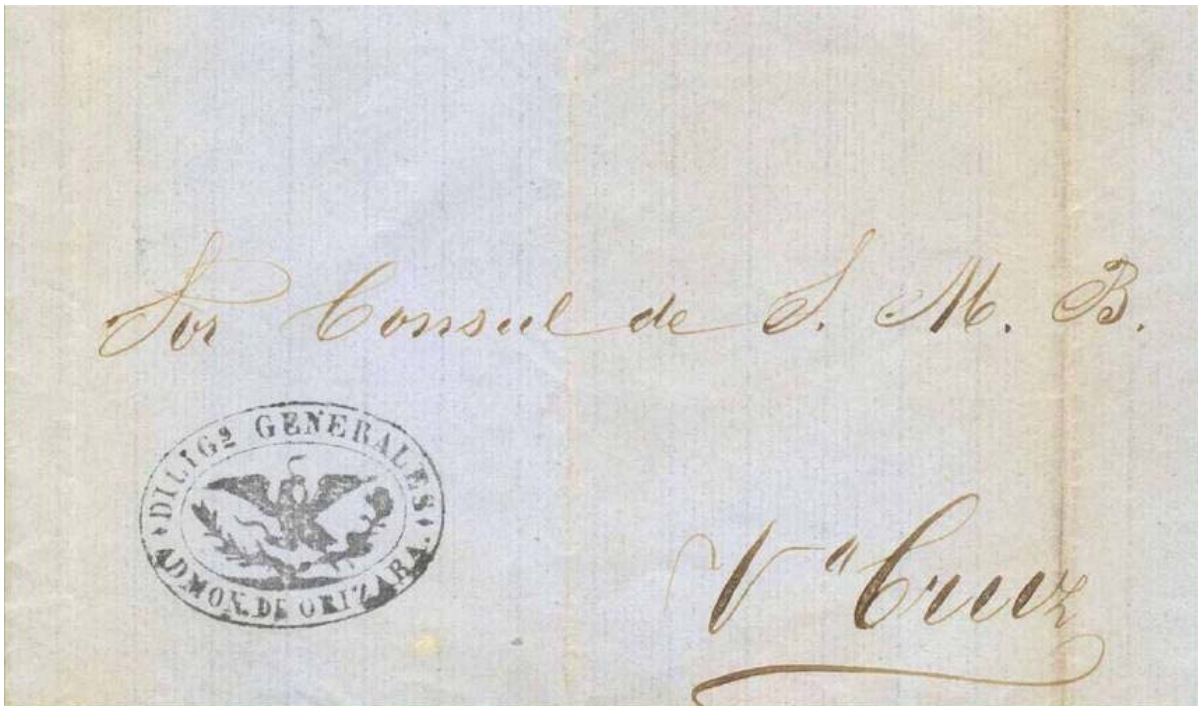 Sor Consul de S. M. B.
DILIGs GENERALES
ADMON. DE ORIZABA.
Va Cruz